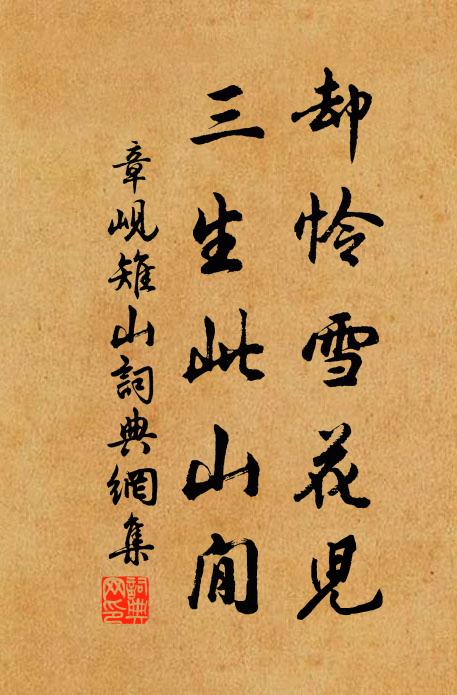 却怜雪花児
三生此山間
章峴雉山詞典網集
詞典網印